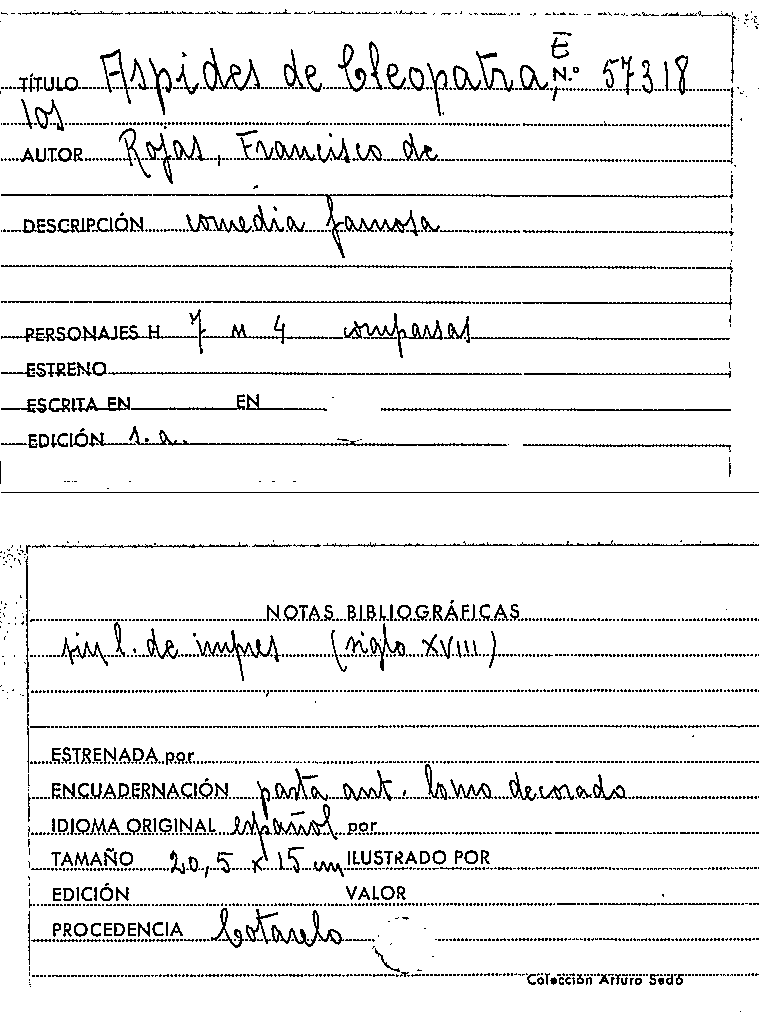 TÍTULO Aspides de Cleopatra, E N.º 57318
los
AUTOR Rojas, Francisco de
DESCRIPCIÓN comedia famosa
PERSONAJES H 7 M 4 comparsas
ESTRENO
ESCRITA EN EN
EDICIÓN s.a.
NOTAS BIBLIOGRÁFICAS
sin l. de impres (siglo XVIII)
ESTRENADA por
ENCUADERNACIÓN pasta ant. lomo decorado
IDIOMA ORIGINAL español por
TAMAÑO 20,5 x 15 cm ILUSTRADO POR
EDICIÓN VALOR
PROCEDENCIA Cotarelo
Colección Arturo Sedó